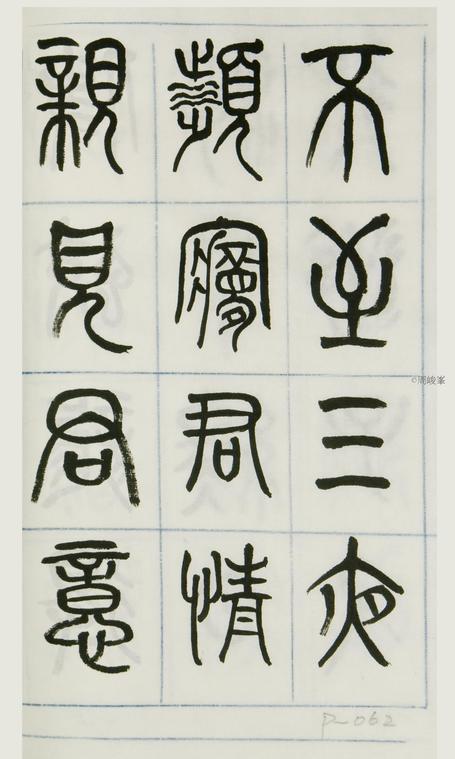 不至三夜
頻夢君情
親見君意
©周峻峯
P-062